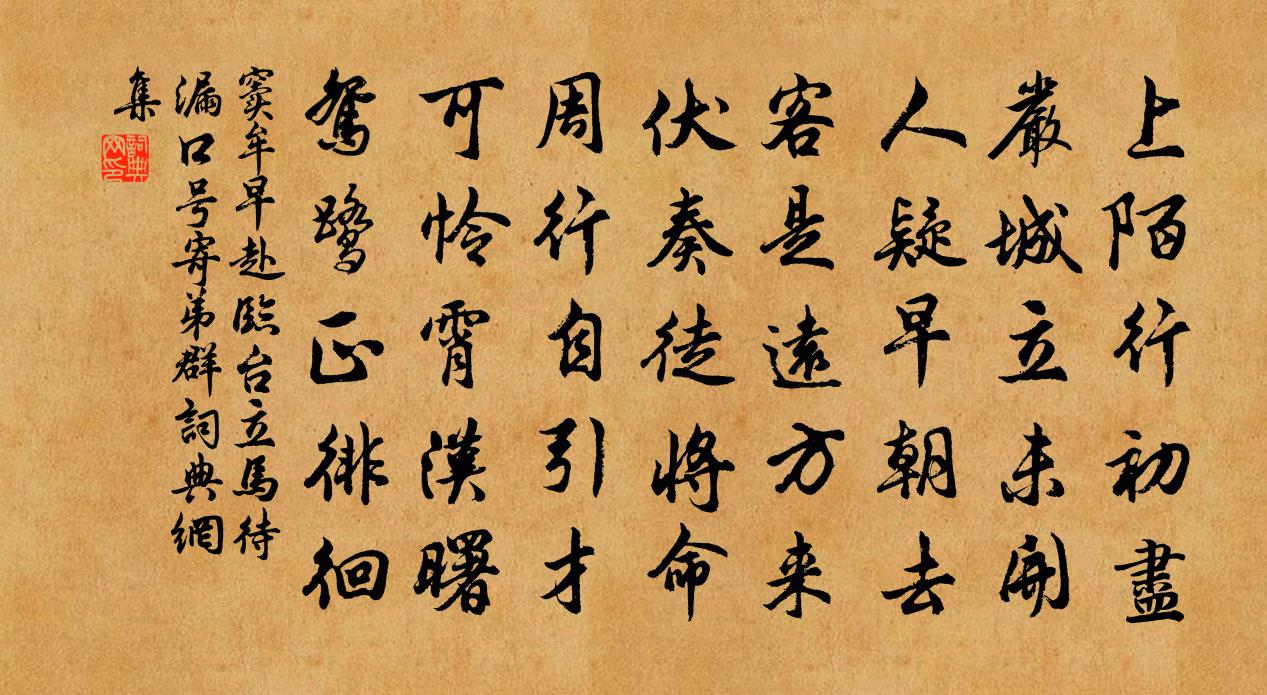 上陌行初盡
嚴城立未開
人疑早朝去
客是遠方来
伏奏徒將命
周行自引才
可怜霄漢曙
鴛鷺正徘徊
竇牟早赴臨台立馬待
漏口号寄弟群詞典網
集
詞典網印